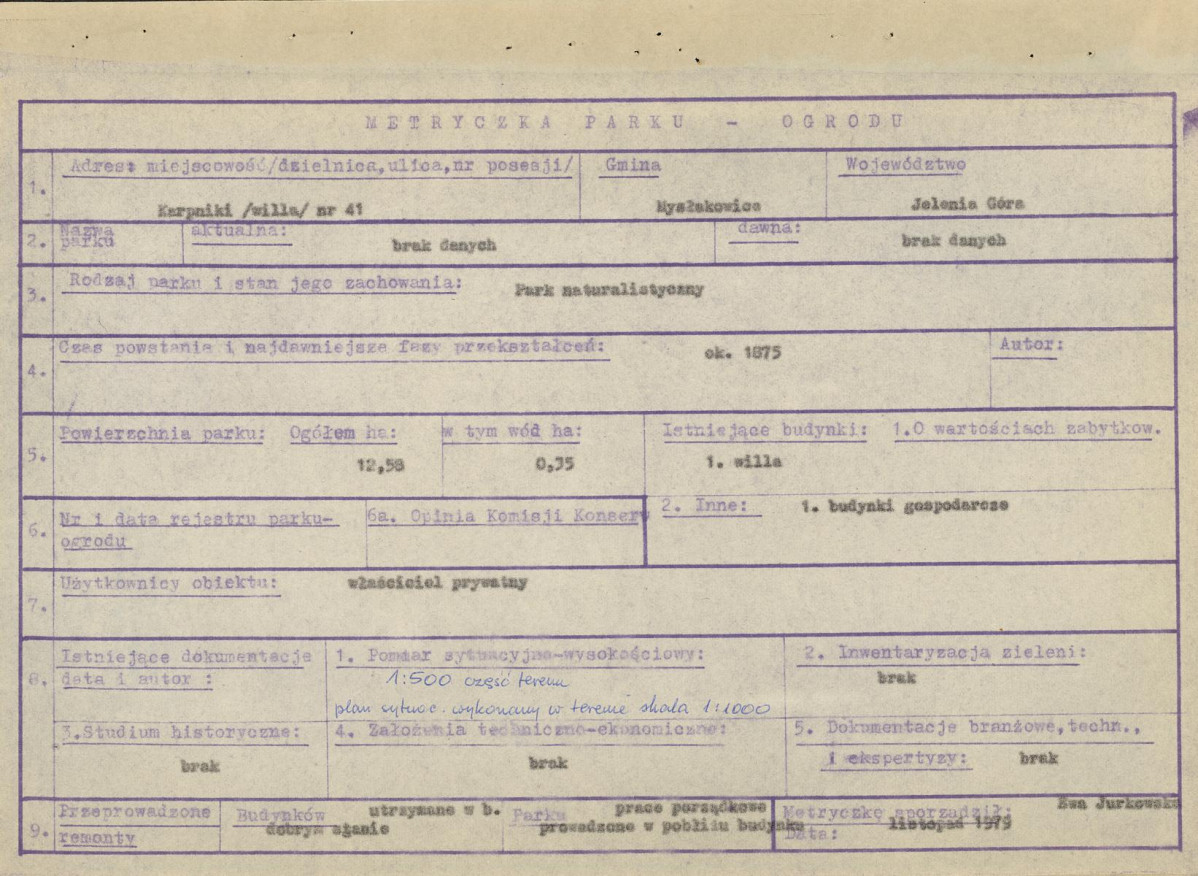 METRYCZKA PARKU - OGRODU
1. Adres: miejscowość/dzielnica,ulica,nr posesji/ Gmina Województwo
Karpniki /willa/ nr 41 Mysłakowice Jelenia Góra
2. Nazwa parku aktualna: brak danych dawna: brak danych
3. Rodzaj parku i stan jego zachowania: Park naturalistyczny
4. Czas powstania i najdawniejsze fazy przekształceń: ok. 1875 Autor:
5. Powierzchnia parku: Ogółem ha: w tym wód ha: Istniejące budynki: 1.O wartościach zabytkow.
12,58 0,35 1. willa
2. Inne: 1. budynki gospodarcze
6. Nr i data rejestru parku- 6a. Opinia Komisji Konserw
ogrodu
7. Użytkownicy obiektu: właściciel prywatny
8. Istniejące dokumentacje 1. Pomiar sytuacyjno-wysokościowy: 2. Inwentaryzacja zieleni:
data i autor : 1:500 część terenu brak
plan sytuac. wykonany w terenie skala 1:1000
3.Studium historyczne: 4. Założenia techniczno-ekonomiczne: 5. Dokumentacje branżowe,techn.,
brak brak i ekspertyzy: brak
9. Przeprowadzone Budynków utrzymane w b. Parku prace porządkowe Metryczkę sporządził: Ewa Jurkowska
remonty dobrym stanie prowadzone w pobliżu budynku Data: listopad 1979